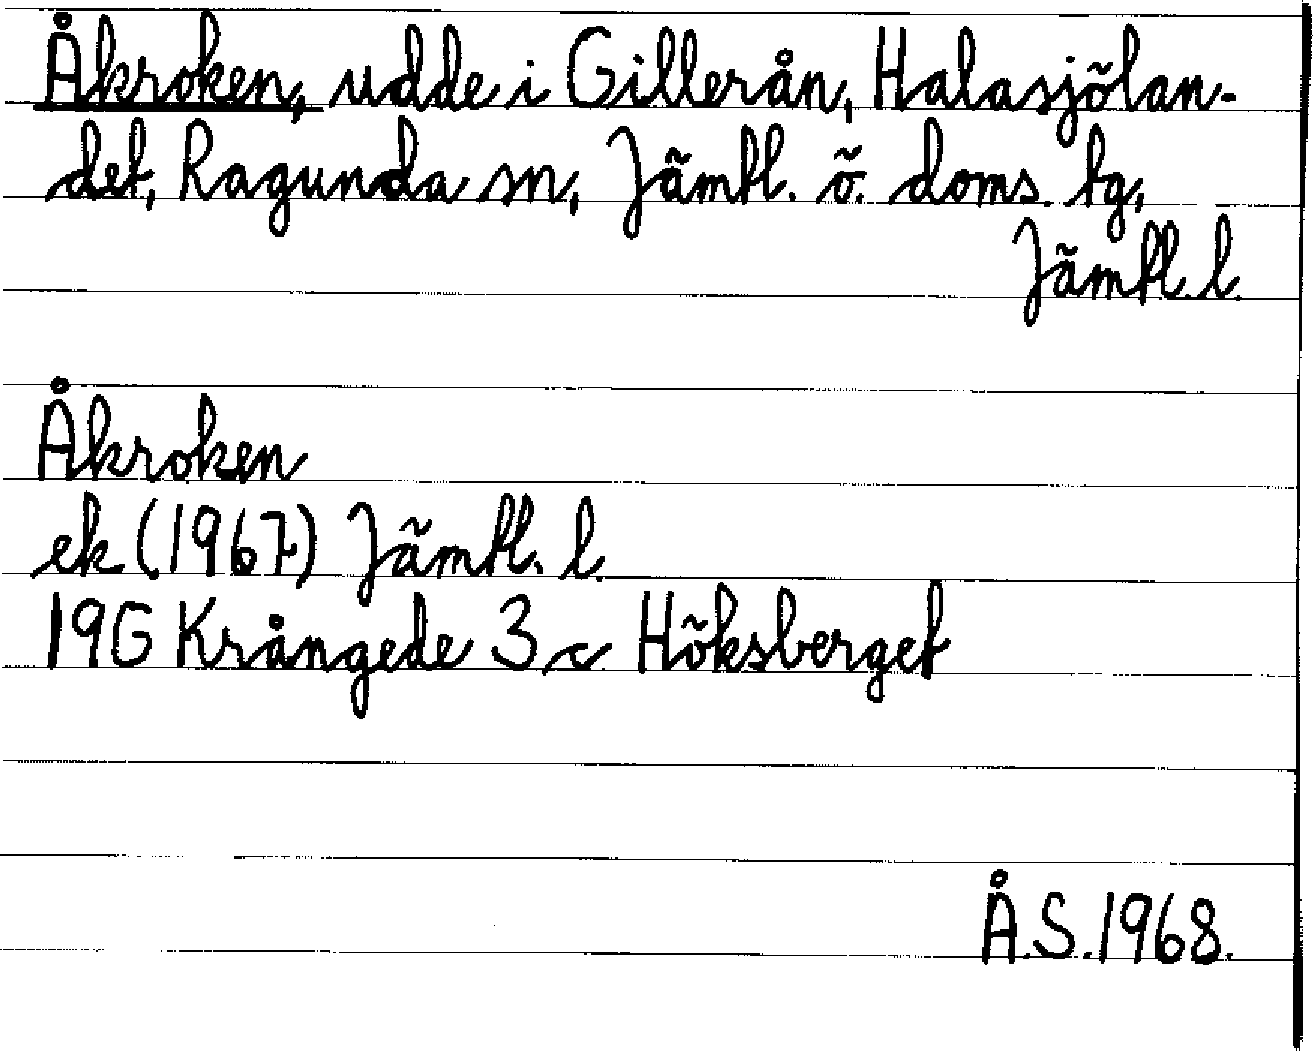 Åkroken, udde i Gillerån, Halasjölan-
det, Ragunda sn, Jämtl. ö. doms. tg,
Jämtl. l.
Åkroken
ek (1967) Jämtl. l.
19G Krångede 3 c Höksberget
Å.S. 1968.